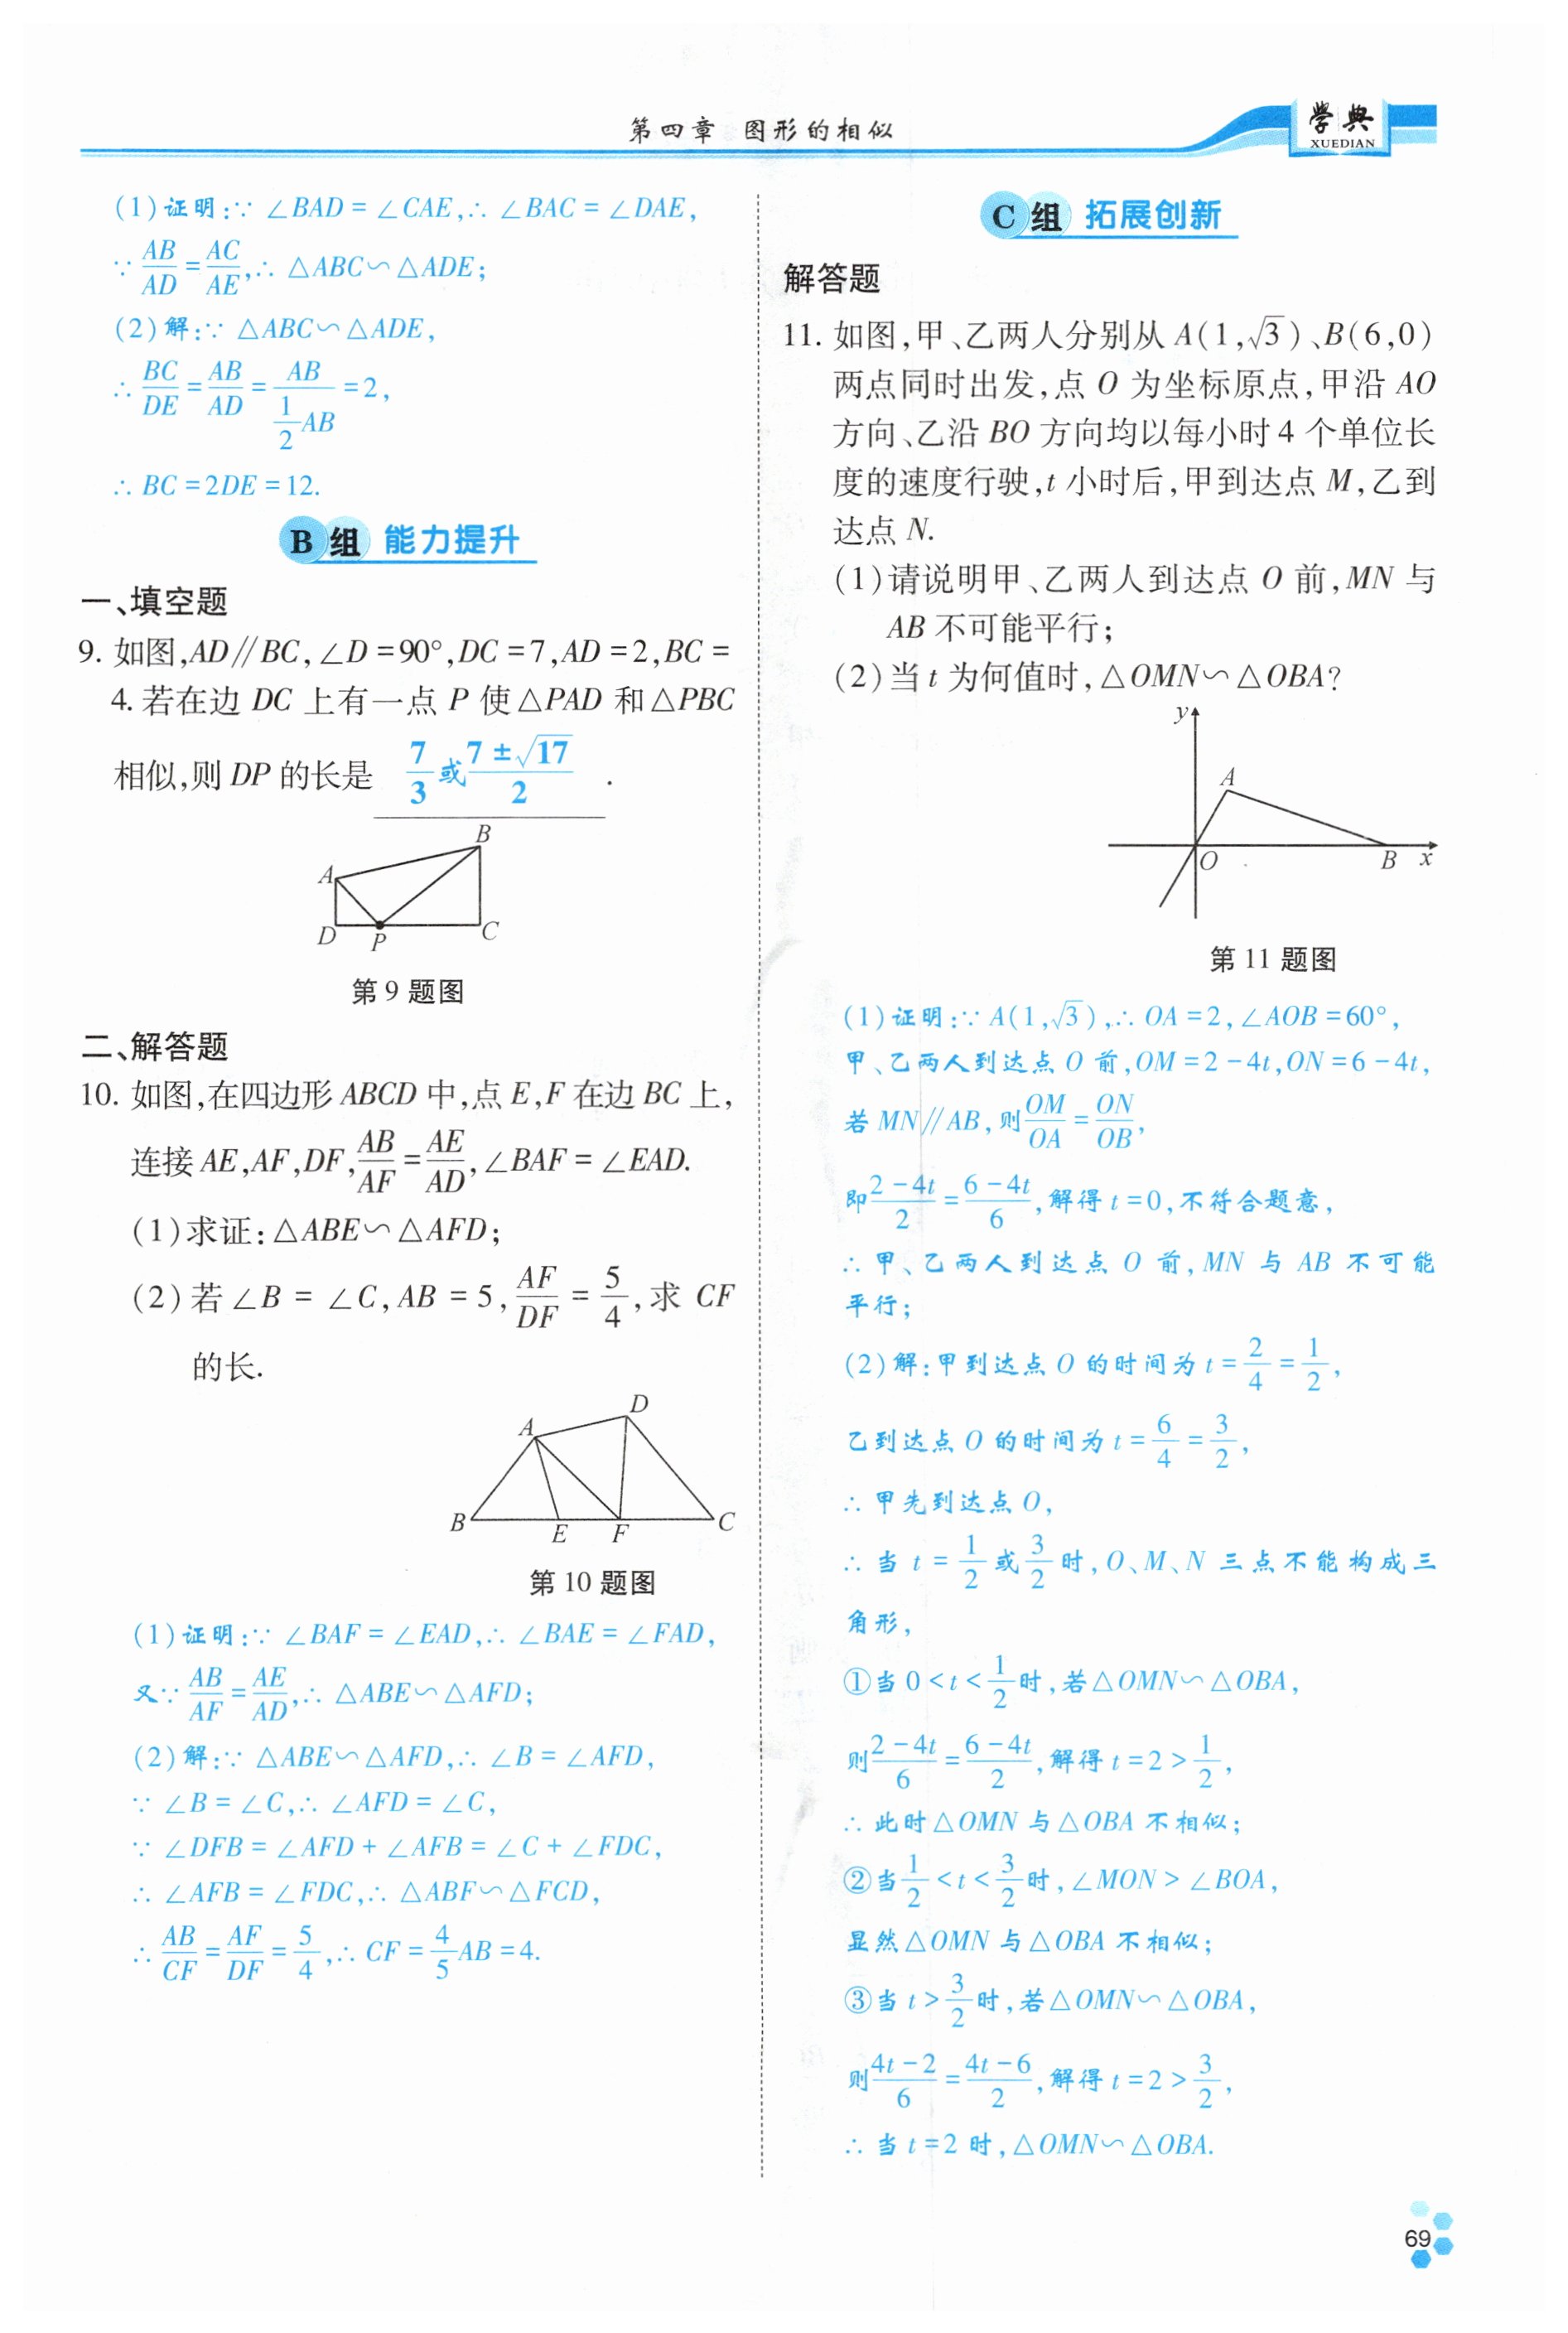 第四章 图形的相似
学典
XUEDIAN
(1)证明:∵ ∠BAD = ∠CAE,∴ ∠BAC = ∠DAE,
∵ AB/AD = AC/AE,∴ △ABC∽△ADE;
(2)解:∵ △ABC∽△ADE,
∴ BC/DE = AB/AD = AB/(1/2 AB) = 2,
∴ BC = 2DE = 12.
B组 能力提升
一、填空题
9. 如图,AD∥BC,∠D = 90°,DC = 7,AD = 2,BC =
4. 若在边 DC 上有一点 P 使△PAD 和△PBC
相似,则 DP 的长是 7/3 或 (7 ± √17)/2 .
B
A
D
P
C
第9题图
二、解答题
10. 如图,在四边形 ABCD 中,点 E,F 在边 BC 上,
连接 AE,AF,DF, AB/AF = AE/AD, ∠BAF = ∠EAD.
(1)求证:△ABE∽△AFD;
(2)若 ∠B = ∠C,AB = 5, AF/DF = 5/4,求 CF
的长.
D
A
B
E
F
C
第10题图
(1)证明:∵ ∠BAF = ∠EAD,∴ ∠BAE = ∠FAD,
又∵ AB/AF = AE/AD,∴ △ABE∽△AFD;
(2)解:∵ △ABE∽△AFD,∴ ∠B = ∠AFD,
∵ ∠B = ∠C,∴ ∠AFD = ∠C,
∵ ∠DFB = ∠AFD + ∠AFB = ∠C + ∠FDC,
∴ ∠AFB = ∠FDC,∴ △ABF∽△FCD,
∴ AB/CF = AF/DF = 5/4,∴ CF = 4/5 AB = 4.
C组 拓展创新
解答题
11. 如图,甲、乙两人分别从 A(1,√3)、B(6,0)
两点同时出发,点 O 为坐标原点,甲沿 AO
方向、乙沿 BO 方向均以每小时4个单位长
度的速度行驶,t 小时后,甲到达点 M,乙到
达点 N.
(1)请说明甲、乙两人到达点 O 前,MN 与
AB 不可能平行;
(2)当 t 为何值时,△OMN∽△OBA?
y
A
O
B
x
第11题图
(1)证明:∵ A(1,√3),∴ OA = 2,∠AOB = 60°,
甲、乙两人到达点 O 前,OM = 2 - 4t,ON = 6 - 4t,
若 MN∥AB,则 OM/OA = ON/OB,
即 (2 - 4t)/2 = (6 - 4t)/6,解得 t = 0,不符合题意,
∴ 甲、乙两人到达点 O 前,MN 与 AB 不可能
平行;
(2)解:甲到达点 O 的时间为 t = 2/4 = 1/2,
乙到达点 O 的时间为 t = 6/4 = 3/2,
∴ 甲先到达点 O,
∴ 当 t = 1/2 或 3/2 时,O、M、N 三点不能构成三
角形,
①当 0 < t < 1/2 时,若△OMN∽△OBA,
则 (2 - 4t)/6 = (6 - 4t)/2,解得 t = 2 > 1/2,
∴ 此时△OMN 与△OBA 不相似;
②当 1/2 < t < 3/2 时,∠MON > ∠BOA,
显然△OMN 与△OBA 不相似;
③当 t > 3/2 时,若△OMN∽△OBA,
则 (4t - 2)/6 = (4t - 6)/2,解得 t = 2 > 3/2,
∴ 当 t = 2 时,△OMN∽△OBA.
69